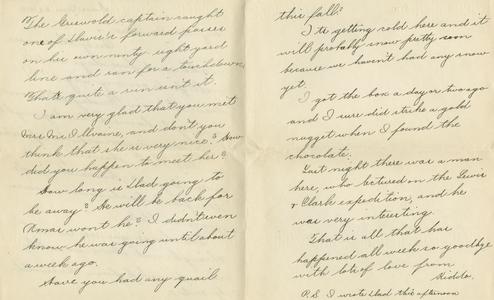 "The Griswold captain caught
one of Davie's forward passes
on his own ninty eight yard
line and ran for a touchdown,
Thats quite a run isn't it.
I am very glad that you met
Mrs. McIlvaine, and don't you
think that she is very nice? How
did you happen to meet her?
How long is Dad going to
be away? He will be back for
Xmas won't he? I didn't even
know he was going until about
a week ago.
Have you had any quail
this fall?
I ts getting cold here and it
will probably snow pretty soon
because we haven't had any snow
yet.
I got the box a day or two ago
and I sure did strike a gold
nugget when I found the
chocolate.
Last night there was a man
here, who lectured on the Lewis
+ Clark expedition, and he
was very interesting.
That is all that has
happened all week so goodbye
with lots of love from
P.S. I wrote Dad this afternoon